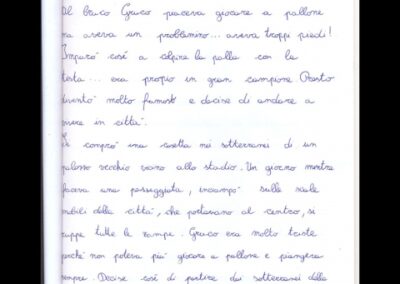 Al bruco Gruco piaceva giocare a pallone
ma aveva un problemino... aveva troppi piedi!
Imparò così a colpire la palla con la
testa... era proprio un gran campione Presto
diventò molto famoso e decise di andare a
vivere in città.
Si comprò una casetta nei sotterranei di un
palazzo vecchio vicino allo stadio. Un giorno mentre
faceva una passeggiata, inciampò sulle scale
mobili della città, che portavano al centro, si
ruppe tutte le zampe. Gruco era molto triste
perché non poteva più giocare a pallone e piangeva
sempre. Decise così di partire dai sotterranei della